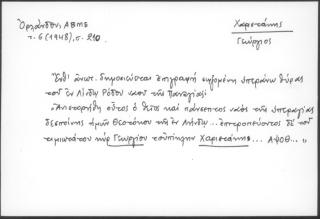 Ὀρλάνδου, ΑΒΜΕ
τ. 6 (1948), σ. 210.
Χαριστάκης
Γεώργιος
Ἔνθ' ἀνωτ. δημοσιεύεται ἐπιγραφή σῳζομένη ὑπεράνω θύρας
τοῦ ἐν Λίνδῳ Ρόδου ναοῦ τῆς Παναγίας:
"Ἀνιστορήθη οὗτος ὁ θεῖος καί πάνσεπτος ναός τῆς ὑπεραγίας
δεσποίνης ἡμῶν Θεοτόκου τῆς ἐν Λίνδῳ... ἐπιτροπεύοντος δέ τοῦ
τιμιωτάτου κύρ Γεωργίου τοὐπίκλην Χαριστάκης... ΑΨΟΘ...„